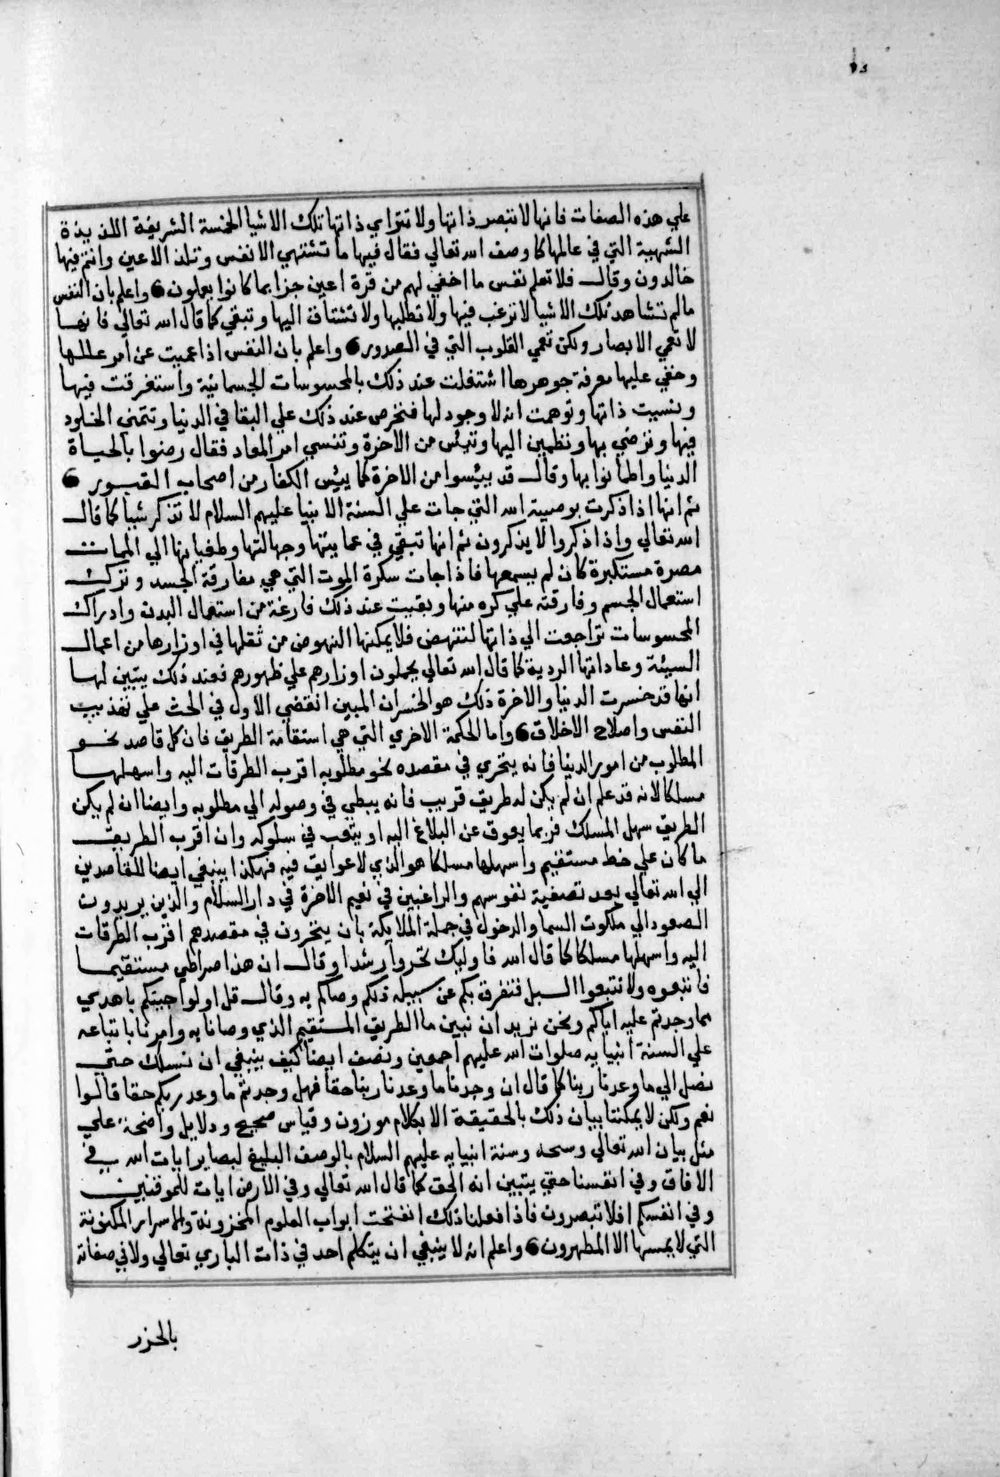 علي هذه الصفات فانها لا تبصر ذاتها ولا تتراي ذاتها تلك الاشيا الحسنة الشريفة اللذيذة
الشهية التي في عالمها كما وصف الله تعالي فقال فيها ما تشتهي الانفس وتلذ الاعين وانتم فيها
خالدون وقال فلا تعلم نفس ما اخفي لهم من قرة اعين جزا بما كانوا يعملون واعلم بان النفس
ما لم تشاهد تلك الاشيا لا ترغب فيها ولا تطلبها ولا تشتاق اليها وتبقي كما قال الله تعالي فانها
لا تعمي الابصار ولكن تعمي القلوب التي في الصدور واعلم بان النفس اذا عميت عن امر عالمها
وخفي عليها معرفة جوهرها اشتغلت عند ذلك بالمحسوسات الجسمانية واستغرقت فيها
ونسيت ذاتها وتوهمت انه لا وجود لها فتحرص عند ذلك علي البقا في الدنيا وتتمني الخلود
فيها وترضي بها وتطمين اليها وتيئس من الاخرة وتنسي امر المعاد فقال رضوا بالحياة
الدنيا واطمانوا بها وقال قد يئسوا من الاخرة كما يئس الكفار من اصحاب القبور
ثم انها اذا ذكرت بوصية الله التي جات علي السنة الانبيا عليهم السلام لا تذكر شيا كما قال
الله تعالي واذا ذكروا لا يذكرون ثم انها تبقي في عمايتها وجهالتها وطغيانها الي الممات
مصرة مستكبرة كان لم يسمعها فاذا جات سكرة الموت التي هي مفارقة الجسد وترك
استعمال الجسم وفارقته علي كره منها وبقيت عند ذلك فارغة من استعمال البدن وادراك
المحسوسات تراجعت الي ذاتها لتنهض فلا يمكنها النهوض من ثقلها في اوزارها من اعمال
السيئة وعاداتها الردية كما قال الله تعالي يحملون اوزارهم علي ظهورهم فعند ذلك يتبين لها
انها قد خسرت الدنيا والاخرة ذلك هو الخسران المبين انقضي الاول في الحث علي تهذيب
النفس واصلاح الاخلاق واما الحكمة الاخري التي هي استقامة الطريق فان كل قاصد نحو
المطلوب من امور الدنيا فانه يتحري في مقصده نحو مطلوبه اقرب الطرقات اليه واسهلها
مسلكا لانه قد علم ان لم يكن له طريق قريب فانه يبطي في وصوله الي مطلوبه وايضا ان لم يكن
الطريق سهل المسلك فربما يعوق عن البلاغ اليه او يتعب في سلوكه وان اقرب الطريق
ما كان علي خط مستقيم واسهلها مسلكا هو الذي لا عوايق فيه فهكذا ينبغي ايضا للقاصدين
الي الله تعالي بعد تصفية نفوسهم والراغبين في نعيم الاخرة في دار السلام والذين يريدون
الصعود الي ملكوت السما والدخول في جملة الملايكة بان يتحرون في مقصدهم اقرب الطرقات
اليه واسهلها مسلكا كما قال الله فاوليك تحروا رشدا وقال ان هذا صراطي مستقيما
فاتبعوه ولا تتبعوا السبل فتفرق بكم عن سبيله ذلكم وصاكم به وقال قل اولو جيتكم باهدي
مما وجدتم عليه اباكم ونحن نريد ان نبين ما الطريق المستقيم الذي وصانا به وامرنا باتباعه
علي السنة انبيايه صلوات الله عليهم اجمعين ونصف ايضا كيف ينبغي ان نسلك حتي
نصل الي ما وعدنا ربنا كما قال ان وجدنا ما وعدنا ربنا حقا فهل وجدتم ما وعد ربكم حقا قالوا
نعم ولكن لا يمكننا بيان ذلك بالحقيقة الا بكلام موزون وقياس صحيح ودلايل واضحة علي
مثل بيان الله تعالي وسنة انبيايه عليهم السلام بالوصف البليغ لبصاير ايات الله في
الافاق وفي انفسنا حتي يتبين انه الحق كما قال الله تعالي وفي الارض ايات للموقنين
وفي انفسكم افلا تبصرون فاذا فعلنا ذلك انفتحت ابواب العلوم المخزونة والاسرار المكنونة
التي لا يمسها الا المطهرون واعلم انه لا ينبغي ان يتكلم احد في ذات الباري تعالي ولا في صفاته
بالحزر